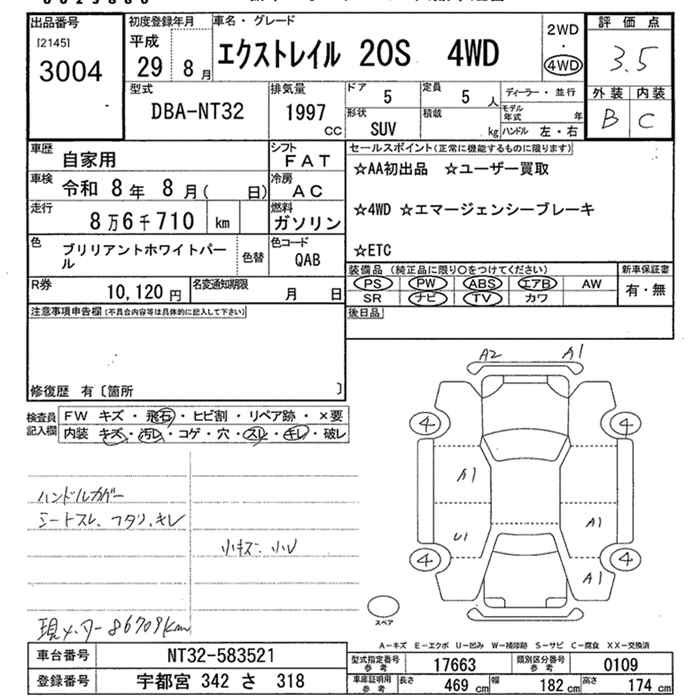 出品番号 初度登録年月 車名・グレード 評価点
[2145] 平成 エクストレイル 20S 4WD 2WD
3004 29 8月 ・ 4WD 3.5
型式 排気量 ドア 定員 ディーラー・並行 外装 内装
DBA-NT32 1997 CC 5 5人 モデル年式 年 B C
形状 積載 ハンドル 左・右
SUV kg
車歴 自家用 シフト FAT セールスポイント(正常に機能するものに限ります)
車検 令和 8年 8月( 日) 冷房 AC ☆AA初出品 ☆ユーザー買取
走行 8万6千710 km 燃料 ガソリン ☆4WD ☆エマージェンシーブレーキ
色 ブリリアントホワイトパール 色替 色コード QAB ☆ETC
装備品(純正品に限り○をつけてください) 新車保証書
R券 10,120円 名変通知期限 月 日 PS PW ABS エアB AW 有・無
SR ナビ TV カワ
注意事項申告欄(不具合内容等は具体的に記入して下さい) 後日品
修復歴 有〔箇所 〕
検査員記入欄 FW キズ・飛石・ヒビ割・リペア跡・×要
内装 キズ・汚レ・コゲ・穴・スレ・キレ・破レ
A2 A1
4 4
A1
U1 A1
4 4
A1
ハンドルカバー
シートスレ、フタリ、キレ
小キズ、小U
現メーター86709km
スペア
A-キズ E-エクボ U-凹み W-補修跡 S-サビ C-腐食 XX-交換済
車台番号 NT32-583521 型式指定番号参考 17663 類別区分番号参考 0109
登録番号 宇都宮 342 さ 318 車庫証明用参考 長さ 469 cm 幅 182 cm 高さ 174 cm